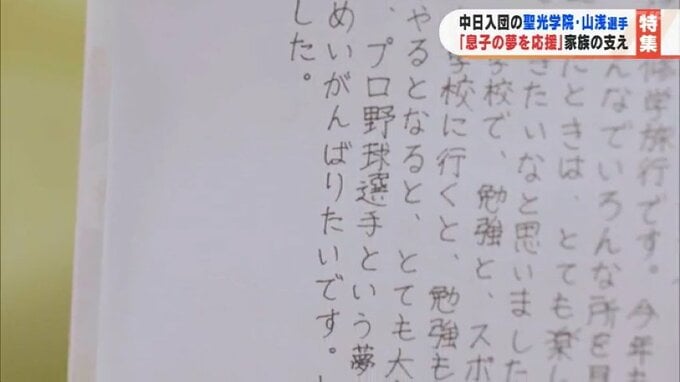 中日入団の聖光学院・山浅選手
「息子の夢を応援」家族の支え
特集
修学旅行です。今年も
んなでいろんな所を見
たときは、とても楽し
きたいなと思いました
学校で、勉強と、スポ
学校に行くと、勉強も
やるとなると、とても大
、プロ野球選手という夢
めいがんばりたいです。
した。